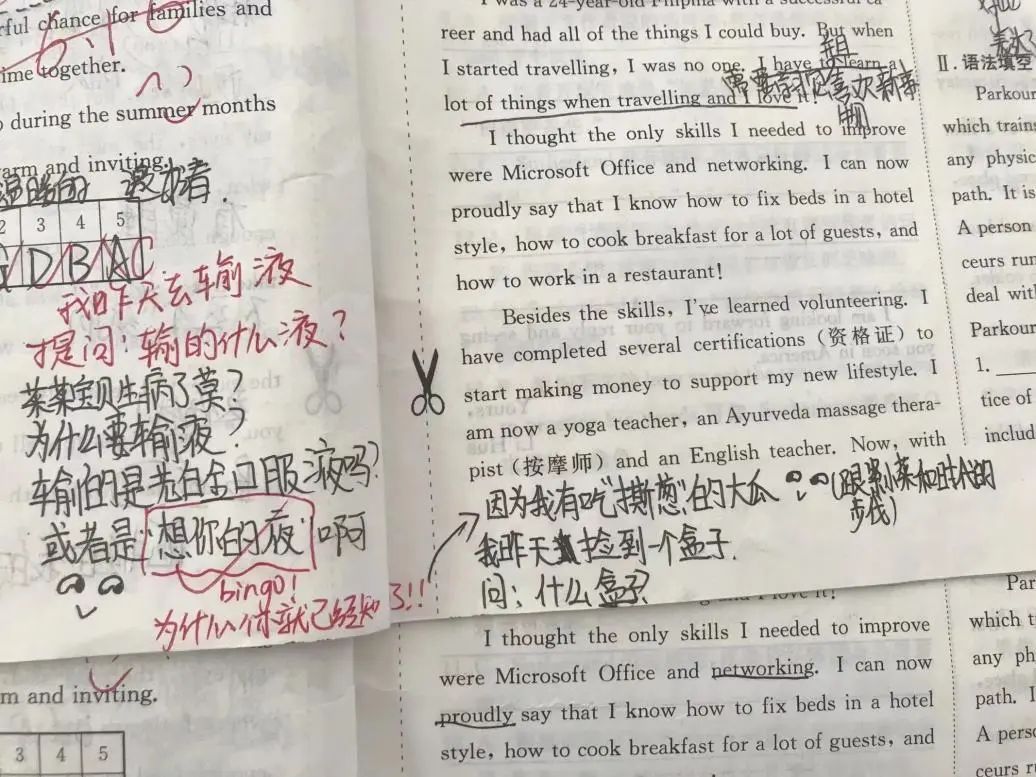 ful chance for families and
ime together.
during the summer months
arm and inviting.
温暖的 邀力者.
2 3 4 5
G D B A C
我昨天去输液
提问:输的什么液?
莱莱宝贝生病了莫?
为什么要输液?
输的是先白金口服液吗?
或者是"想你的夜"啊
bingo!
为什么你就已经知了!!
m and inviting.
3 4 5
I was a 24-year-old Filipina with a successful ca-
reer and had all of the things I could buy. But when
I started travelling, I was no one. I have to learn a
lot of things when travelling and I love it!
需要言习 喜欢新事
I thought the only skills I needed to improve
were Microsoft Office and networking. I can now
proudly say that I know how to fix beds in a hotel
style, how to cook breakfast for a lot of guests, and
how to work in a restaurant!
Besides the skills, I've learned volunteering. I
have completed several certifications (资格证) to
start making money to support my new lifestyle. I
am now a yoga teacher, an Ayurveda massage thera-
pist (按摩师) and an English teacher. Now, with
因为我有吃"撕葱"的大瓜 (跟紧小莱和时代的
步伐)
我昨天捡到一个盒子.
问:什么盒子?
I thought the only skills I needed to improve
were Microsoft Office and networking. I can now
proudly say that I know how to fix beds in a hotel
style, how to cook breakfast for a lot of guests, and
Ⅱ.语法填空
Parkour
which trains
any physic
path. It is
A person
ceurs run
deal with
Parkour
1.
tice of
includ
Par
which t
any ph
path. I
A perso
ceurs r